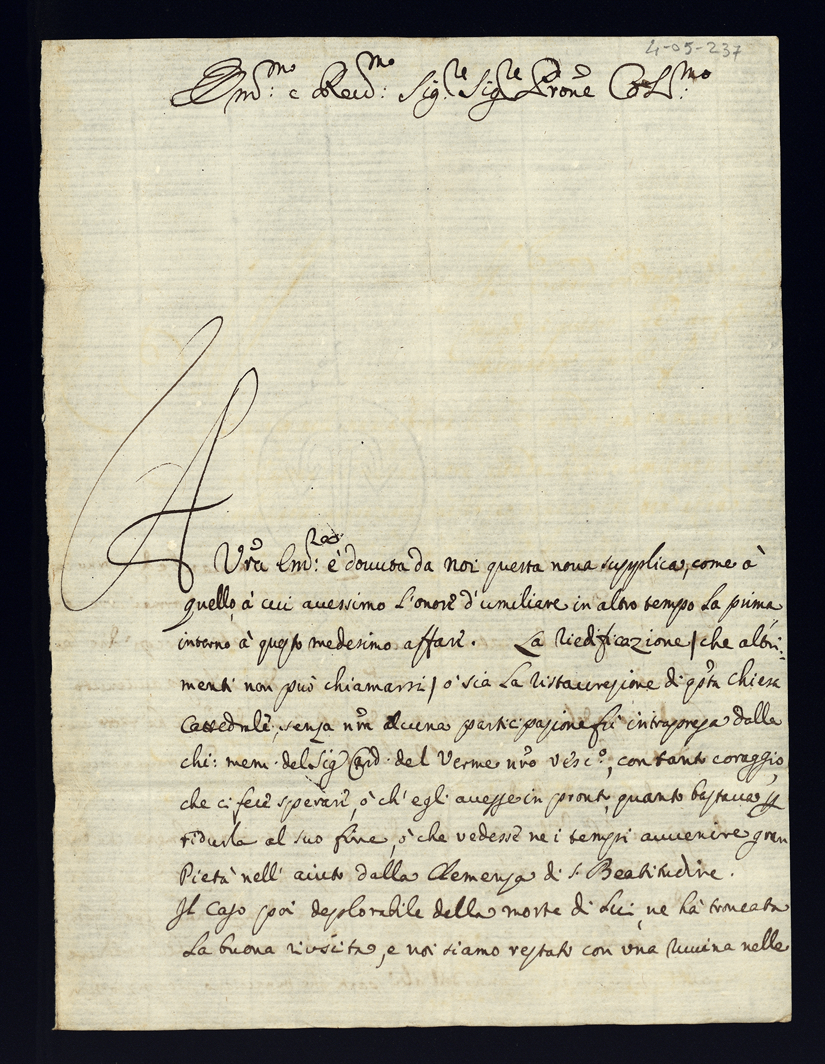 4-05-237
Em.mo e Rev.mo Sig.re Sig.re Prone Col.mo
A Vrã Em.za è dovuta da noi questa nova supplica, come à
quello, à cui avessimo l'onore d'umiliare in altro tempo la prima
intorno à questo medesimo affare. La riedificazione / che altri-
menti non può chiamarsi / ò sia la ristaurazione di q̃sta Chiesa
Cattedrale, senza nr̃a alcuna participazione fù intrapresa dalla
chi: mem: del Sig. Card. del Verme nr̃o Vesc.o, con tanto coraggio,
che ci fece sperare, ò ch'egli avesse in pronto, quanto bastava p
ridurla al suo fine, ò che vedesse ne i tempi avvenire gran
Pietà nell'aiuto dalla Clemenza di S. Beatitudine.
Il Caso poi deplorabile della morte di Lui, ne hà troncata
la buona riuscita, e noi siamo restati con una ruvina nelle